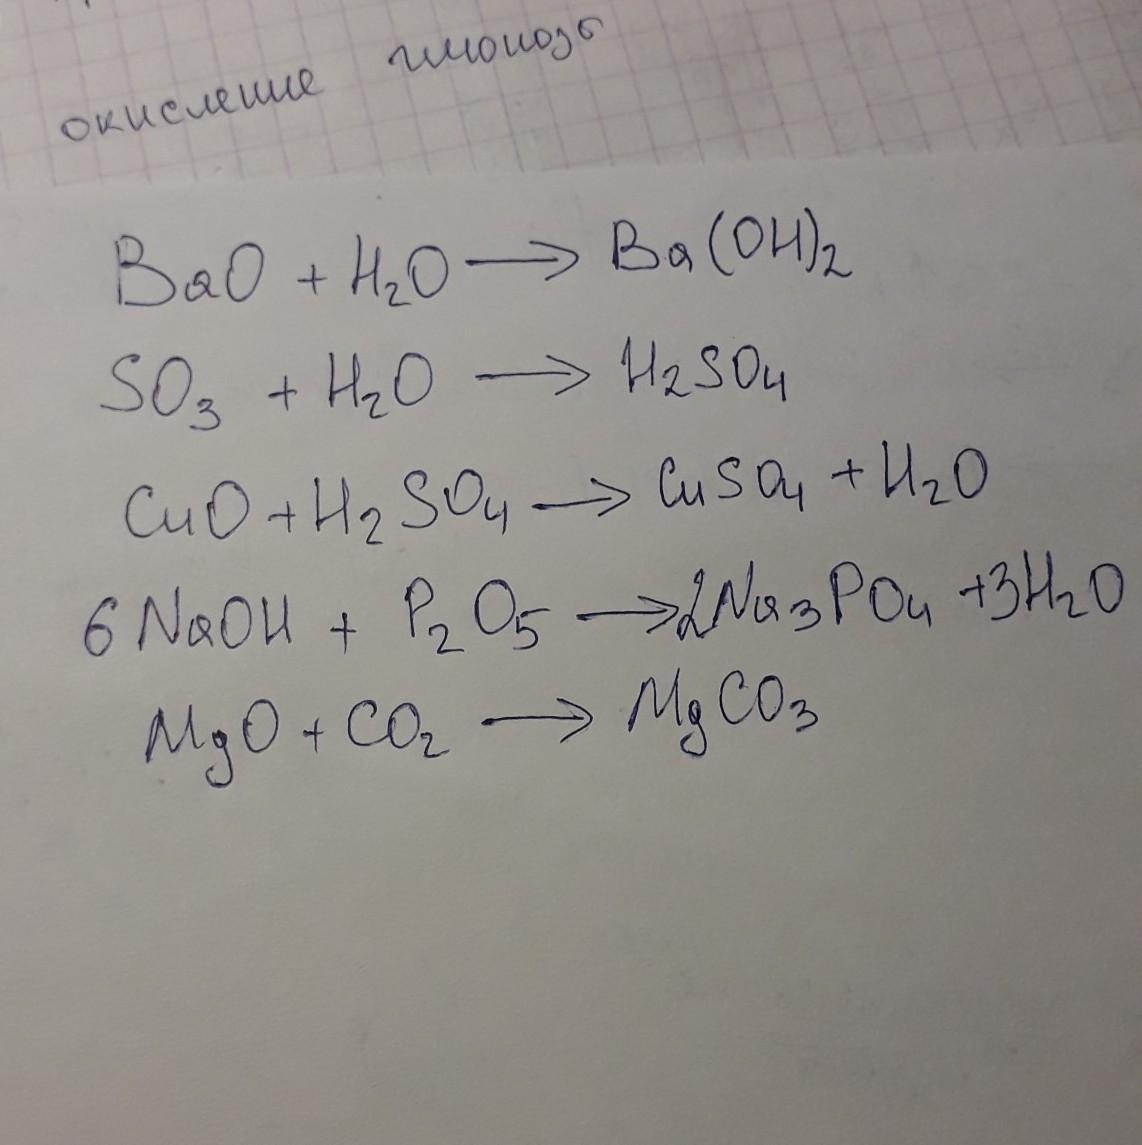 окисление глюкозы
BaO + H₂O ⟶ Ba(OH)₂
SO₃ + H₂O ⟶ H₂SO₄
CuO + H₂SO₄ ⟶ CuSO₄ + H₂O
6NaOH + P₂O₅ ⟶ 2Na₃PO₄ + 3H₂O
MgO + CO₂ ⟶ MgCO₃